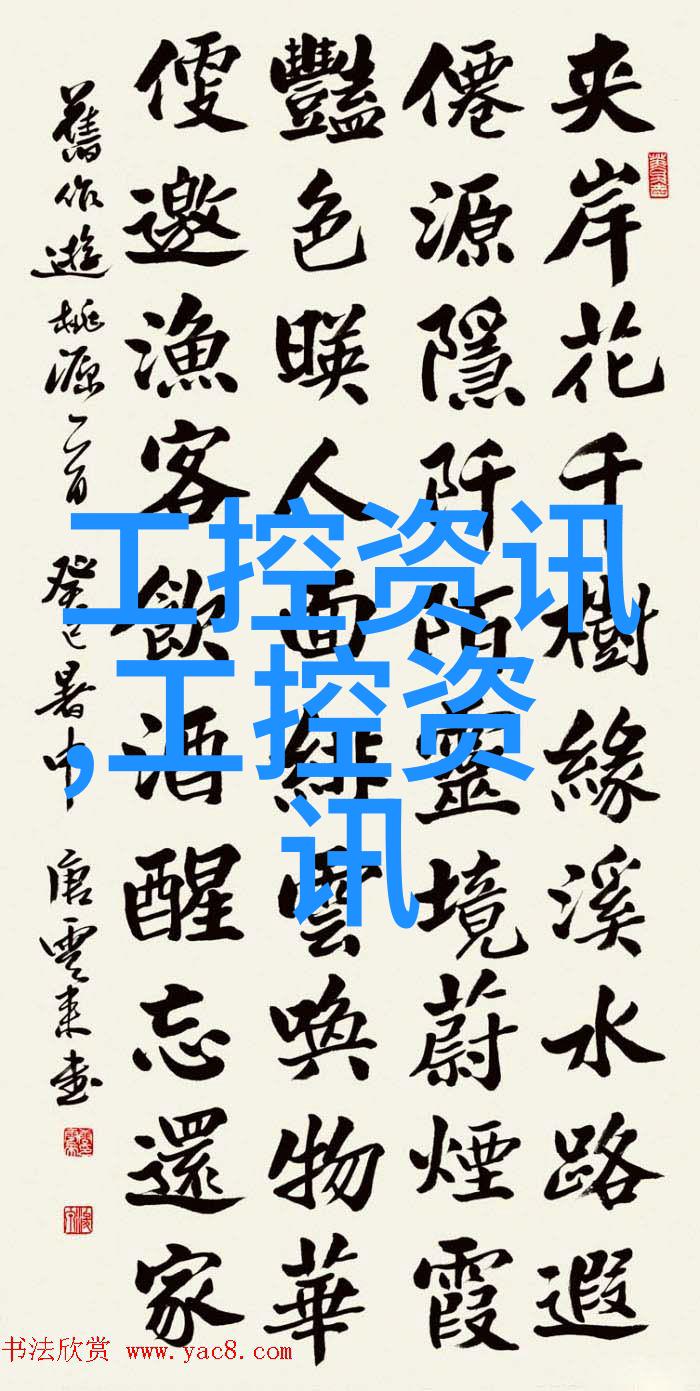 夹岸花千樹緣溪水路遐
僊源隱阡陌靈境蔚煙霞
豔色暎人面緋雲喚物華
便邀漁客飲酒醒忘還家
舊作遊桃源二首 癸巳暑中 唐雲來書
工控资讯
,工控资
讯
书法欣赏 www.yac8.com